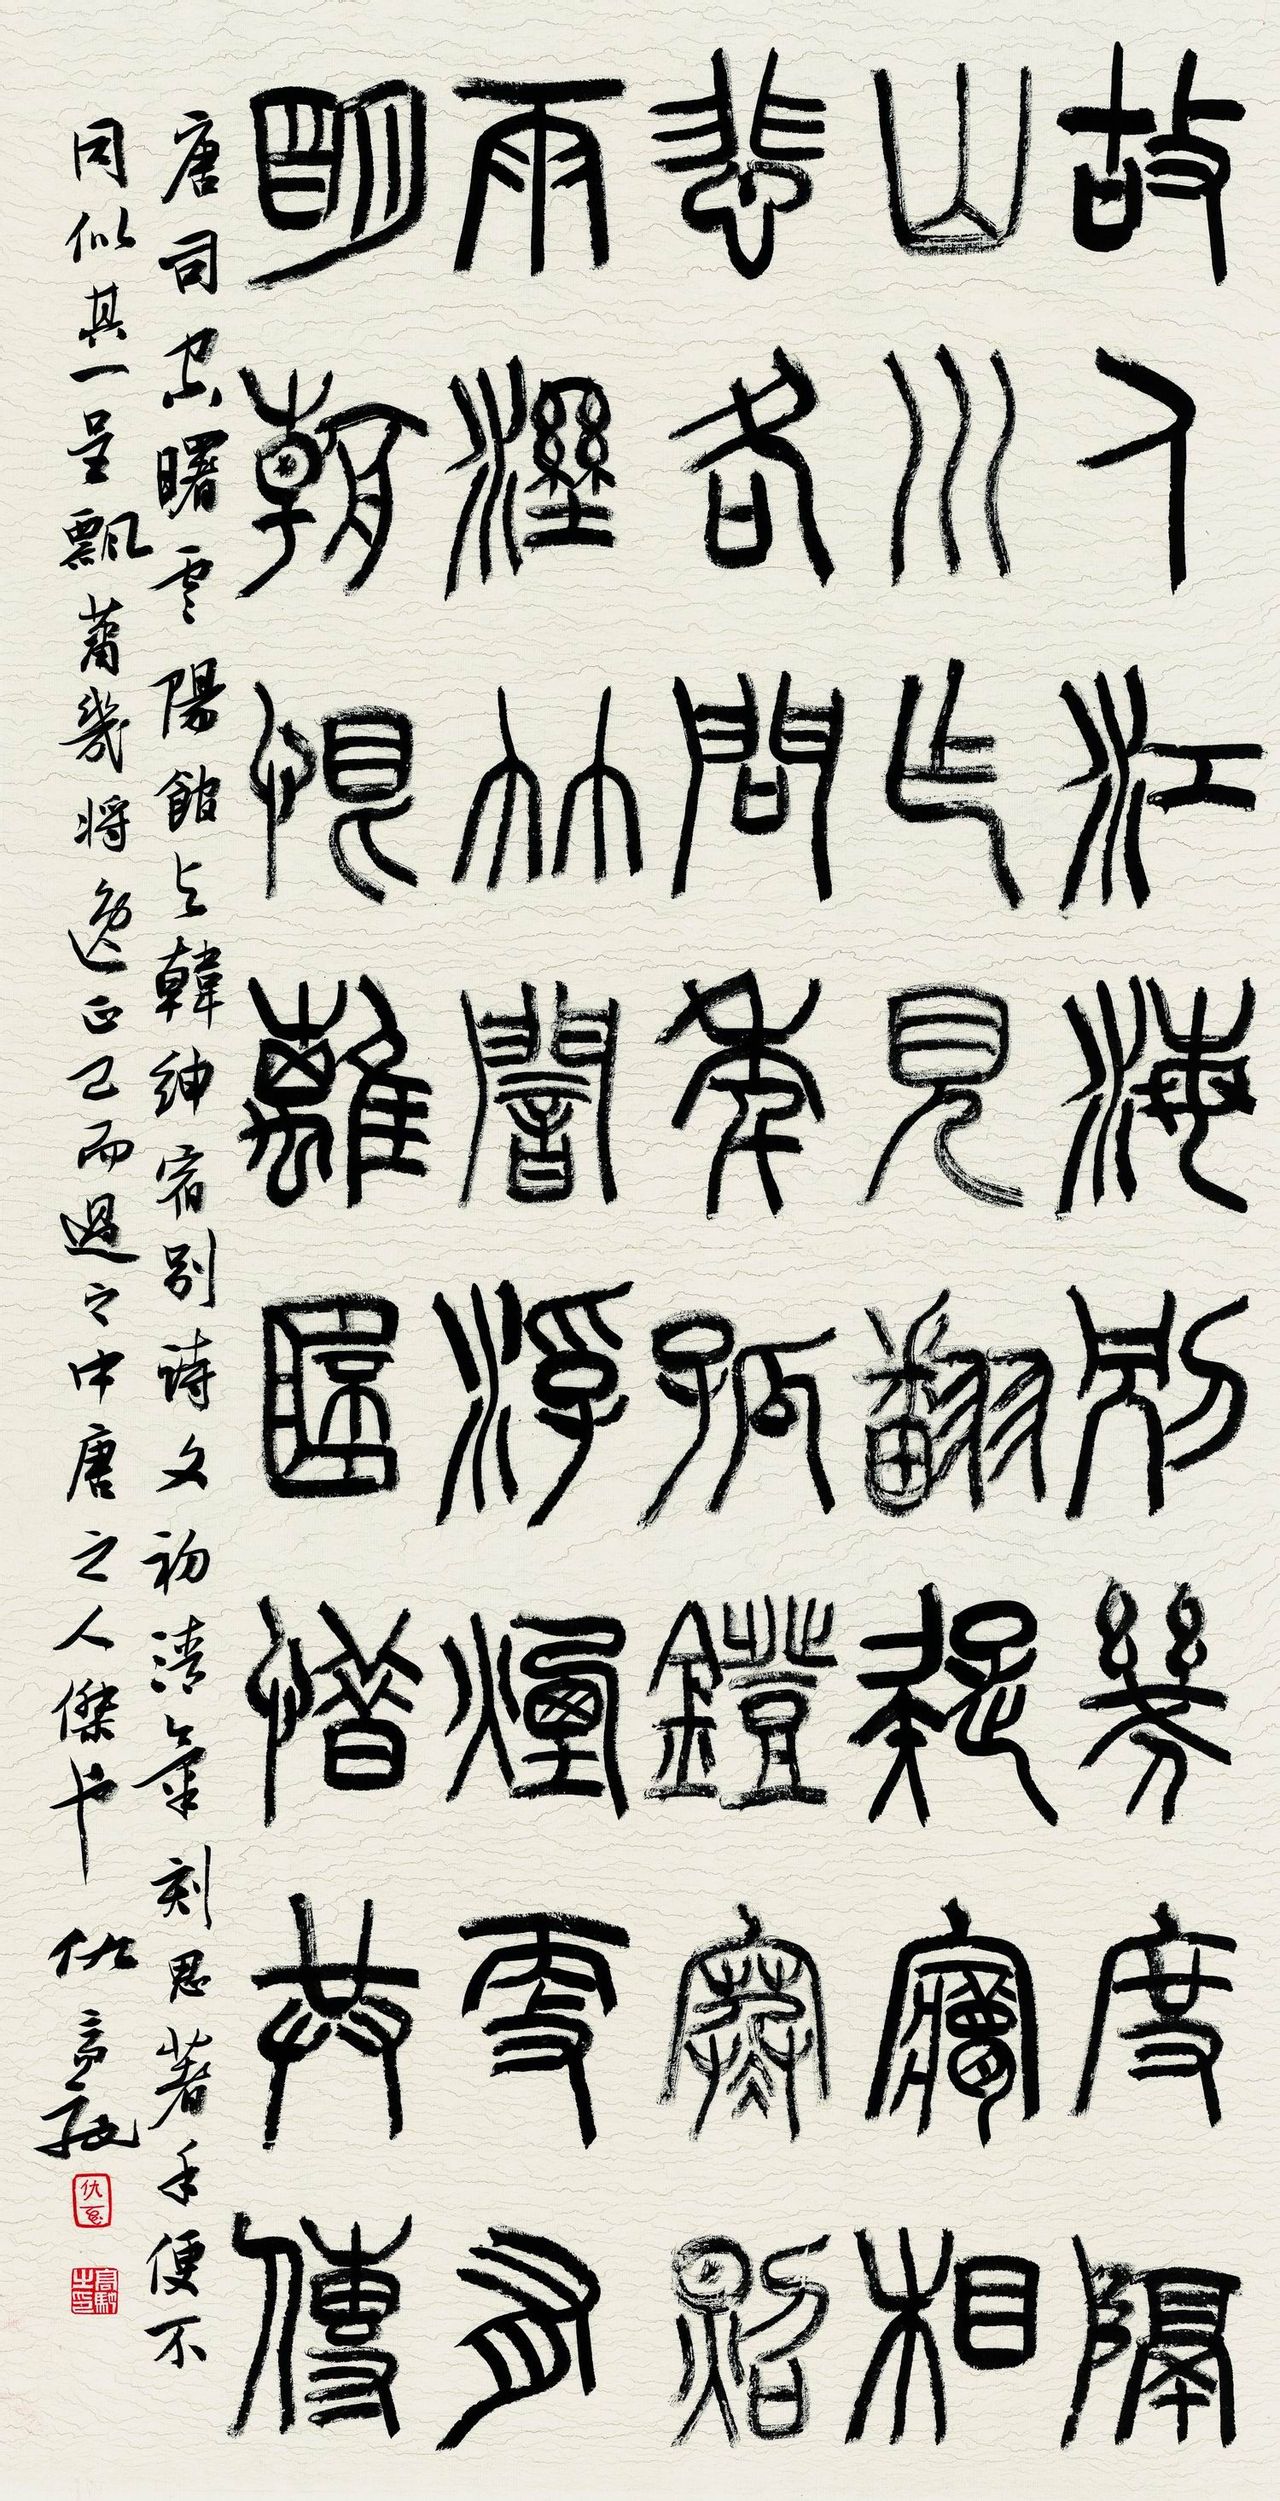 故人江海別幾度隔
山川乍見翻疑夢相
悲各問年孤鐙寒照
雨溼竹闇浮煙更有
明朝恨離桮惜共傳
唐司空曙雲陽館与韓紳宿別詩文初清氣刻思著手便不
同似其一呈飄蕭幾將逸正己而過之中唐之人傑也 仇高馳